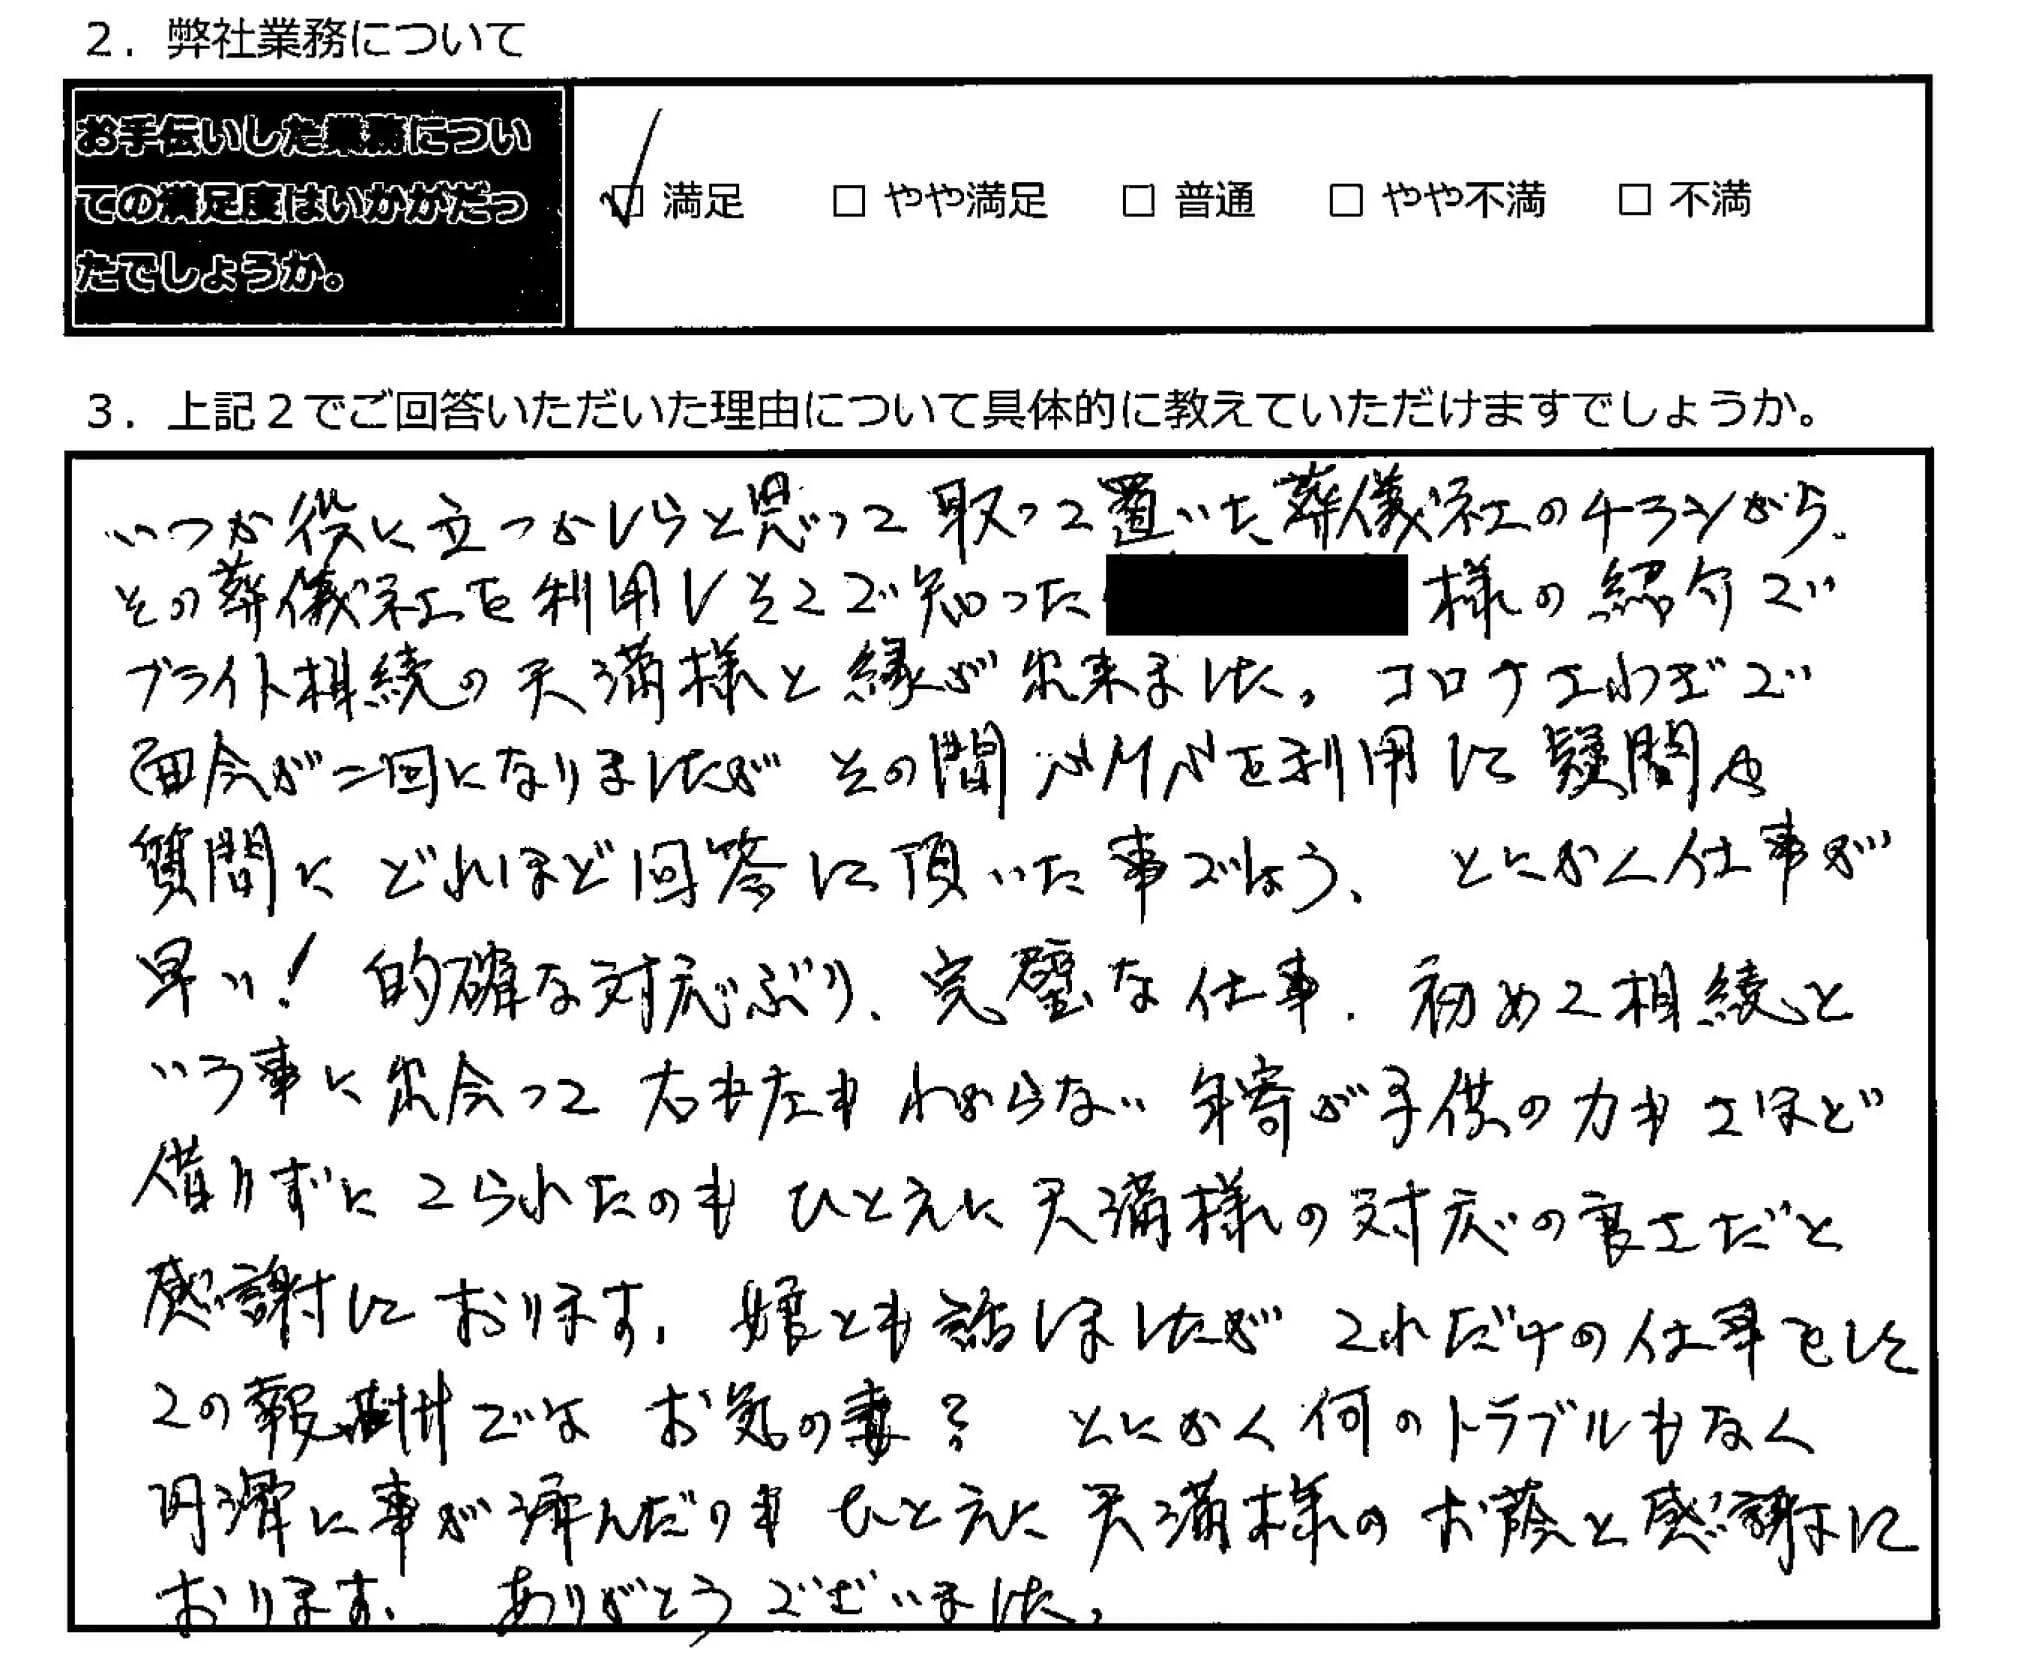 2．弊社業務について
お手伝いした業務につい
ての満足度はいかがだっ
たでしょうか。
☑ 満足 □ やや満足 □ 普通 □ やや不満 □ 不満
3．上記２でご回答いただいた理由について具体的に教えていただけますでしょうか。
いつか役に立つかしらと思って取って置いた葬儀社のチラシから、
その葬儀社を利用しそこで知った 様の紹介で
ブライト相続の天満様と縁が出来ました。コロナさわぎで
面会が二回になりましたが その間メールを利用して疑問や
質問に どれほど回答して頂いた事でしょう、とにかく仕事が
早い！ 的確な対応ぶり、完璧な仕事、初めて相続と
いう事に出会って 右も左もわからない 年寄が子供の力もさほど
借りずに こられたのも ひとえに 天満様の対応の良さだと
感謝して おります。娘とも話しましたが これだけの仕事をして
この報酬では お気の毒？ とにかく何のトラブルもなく
円滑に事が済んだのも ひとえに 天満様のお蔭と感謝して
おります。 ありがとうございました。